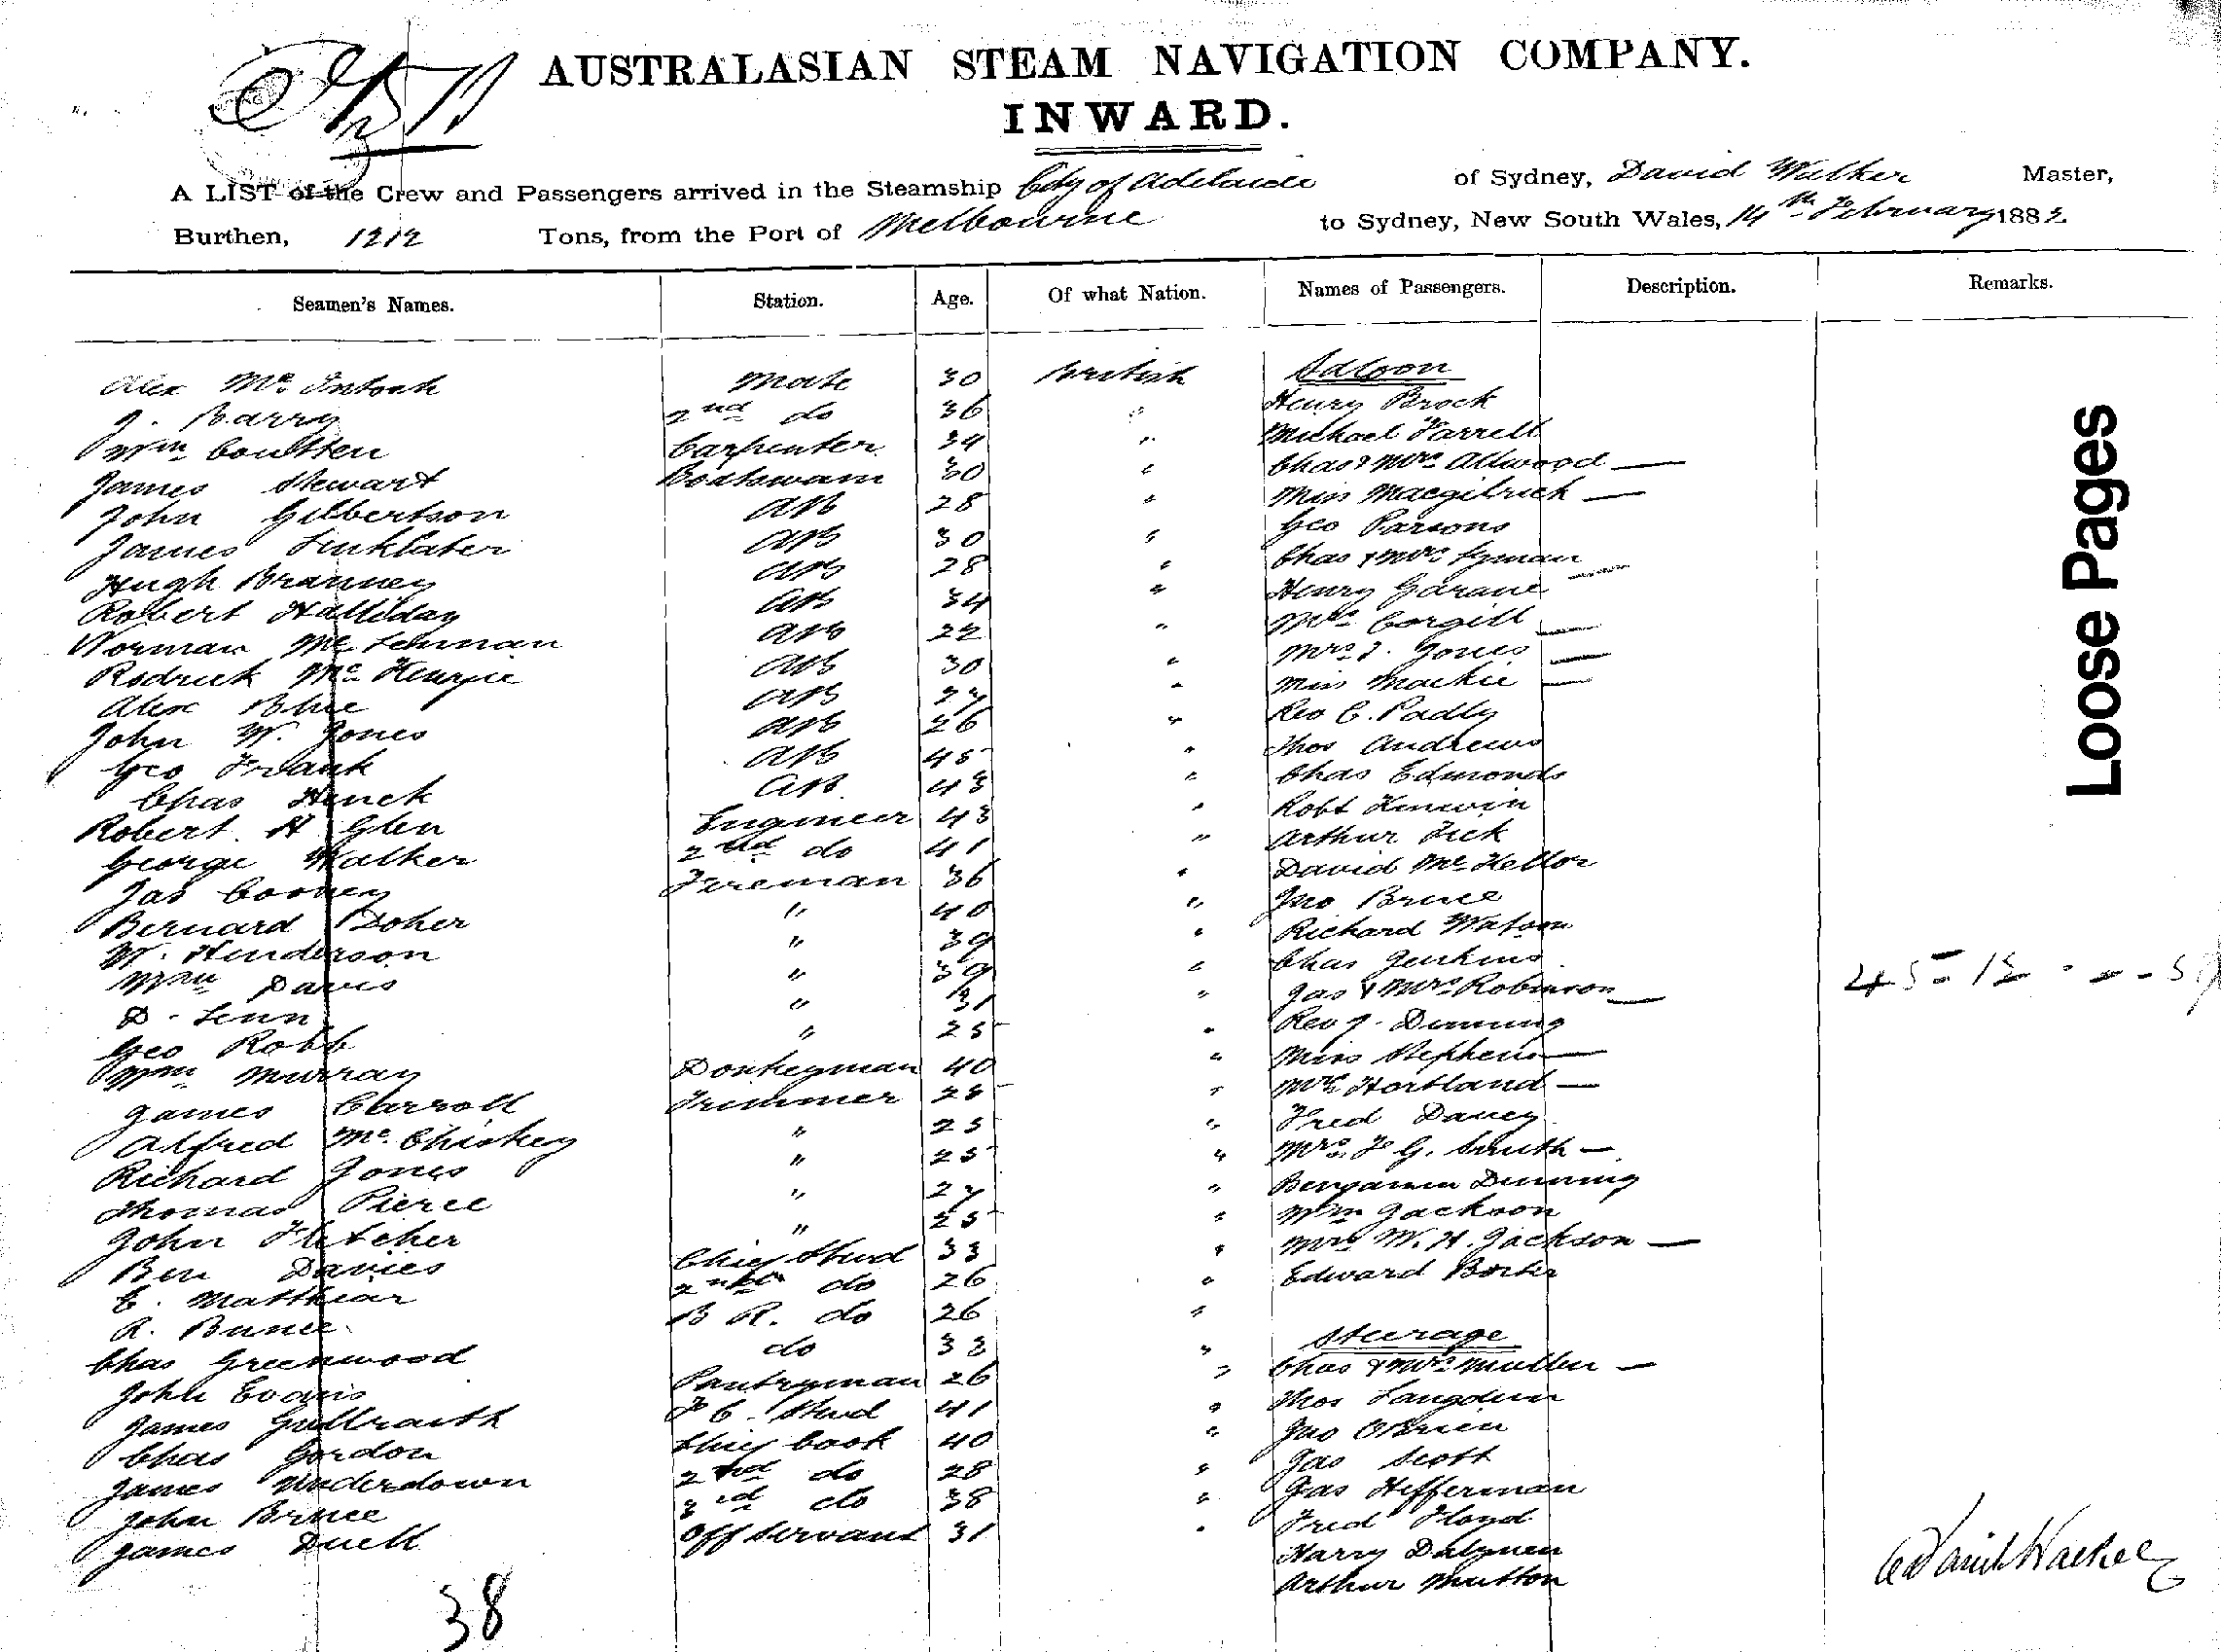 AUSTRALASIAN STEAM NAVIGATION COMPANY.
INWARD.
A LIST of the Crew and Passengers arrived in the Steamship City of Adelaide of Sydney, David Walker Master,
Burthen, 1212 Tons, from the Port of Melbourne to Sydney, New South Wales, 14th February 1882
Seamen's Names. Station. Age. Of what Nation. Names of Passengers. Description. Remarks.
Saloon
Alex Mc Intosh Mate 30 British Henry Brock
J. Barry 2nd do 36 " Michael Farrell
Wm Coultten Carpenter 34 " Chas & Mrs Allwood —
James Stewart Boatswain 30 " Miss Macgilrick —
John Gilbertson AB 28 " Geo Parsons
James Sinklater AB 30 " Chas & Mrs Lyman —
Hugh Branney AB 28 " Henry Garane
Robert Halliday AB 34 " Mrs Corgill —
Norman Mc Lennan AB 22 " Mrs J. Jones —
Rodrick Mc Kenzie AB 30 " Miss Mackie —
Alex Blue AB 27 " Rev C. Padly
John W. Jones AB 26 " Thos Andrews
Geo Frank AB 45 " Chas Edmonds
Chas Henck AB. 43 " Robt Kenwin
Robert H Glen Engineer 43 " Arthur Fick
George Walker 2nd do 41 " David Mc Kellor
Jas Cooney Fireman 36 " Jno Bruce
Bernard Doher " 40 " Richard Watson
W. Henderson " 39 " Chas Jenkins
Wm Davis " 39 " Jas & Mrs Robinson —
D. Lenn " 31 " Rev J. Dinning
Geo Robb " 25 " Miss Stephens —
Wm Murray Donkeyman 40 " Mrs Hortland —
James Carroll Trimmer 28 " Fred Davey
Alfred Mc Chiskey " 25 " Mrs F G. Smith —
Richard Jones " 25 " Benjamin Dinning
Thomas Pierce " 27 " Wm Jackson
John Fletcher " 25 " Mrs W. H. Jackson —
Ben Davies Chief Stwd 33 " Edward Porter
E. Matthiar 2nd do 26 "
R. Bunce B R. do 26 " Steerage
Chas Greenwood do 33 " Chas & Mrs Mullen —
John Evans Pantryman 26 " Thos Langdon
James Gullraith F C. Stwd 41 " Jno OBrien
Chas Gordon Chief Cook 40 " Jas Scott
James Underdown 2nd do 28 " Jas Hefferman
John Bruce 3rd do 38 " Fred Floyd
James Duell Off Servant 31 Harry Dalymen
Arthur Mutton
38
David Walker
Loose Pages